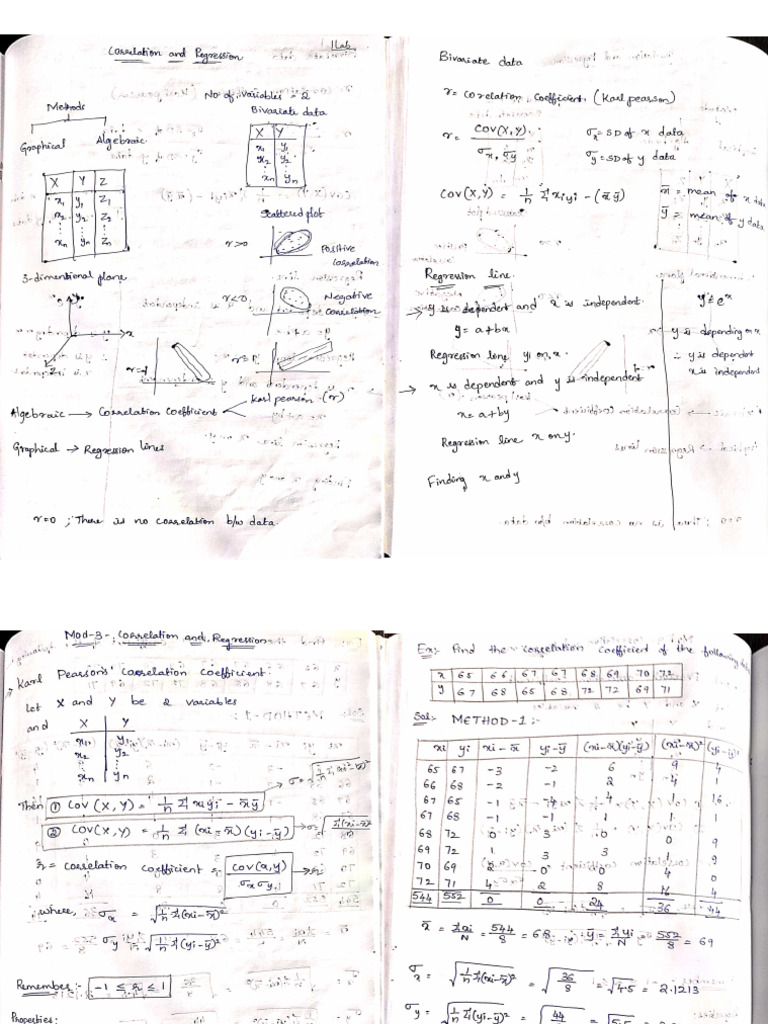 1 Lab
Correlation and Regression
No of variables = 2
Methods
Bivariate data
Graphical Algebraic
X Y
x₁ y₁
x₂ y₂
⋮ ⋮
xn yn
X Y Z
x₁ y₁ z₁
x₂ y₂ z₂
⋮ ⋮ ⋮
xn yn zn
Scattered plot
r>0 Positive correlation
3-dimentional plane
r<0 Negative correlation
x
z
Algebraic → Correlation Coefficient < Karl pearson (r)
Graphical → Regression lines
r=0 ; There is no correlation b/w data.
Bivariate data
r = Corelation Coefficient (Karl pearson)
r = Cov(X,Y) / σx, σy
σx = SD of x data
σy = SD of y data
Cov(X,Y) = 1/n Σ xiyi − (x̄ ȳ)
x̄ = mean of x data
ȳ = mean of y data
Regression line
→ y is dependent and x is independent.
y = a+bx
Regression line y on x.
→ x is dependent and y is independent
x = a+by
Regression line x on y.
Finding x and y
y = eˣ
y is depending on x
∴ y is dependent
x is independent
Mod-3 - Correlation and Regression
→ Karl Pearson's Correlation Coefficient
Let X and Y be 2 variables
and
X Y
x₁ y₁
x₂ y₂
⋮ ⋮
xn yn
Then ① Cov(X,Y) = 1/n Σ xiyi − x̄ȳ
② Cov(X,Y) = 1/n Σ (xi − x̄)(yi − ȳ)
r = correlation coefficient = cov(x,y) / σx σy
where, σx = √(1/n Σ(xi−x̄)²)
σy = √(1/n Σ(yi−ȳ)²)
Remember :- -1 ≤ r ≤ 1
Properties:
Ex:- Find the correlation coefficient of the following
x 65 66 67 67 68 69 70 72
y 67 68 65 68 72 72 69 71
Sol:- METHOD-1 :-
xi yi xi−x̄ yi−ȳ (xi−x̄)(yi−ȳ) (xi−x̄)² (yi−ȳ)
65 67 -3 -2 6 9 4
66 68 -2 -1 2 4 1
67 65 -1 -4 4 1 16
67 68 -1 -1 1 1 1
68 72 0 3 0 0 9
69 72 1 3 3 1 9
70 69 2 0 0 4 0
72 71 4 2 8 16 4
544 552 0 0 24 36 44
x̄ = Σxi/N = 544/8 = 68 ; ȳ = Σyi/N = 552/8 = 69
σx = √(1/n Σ(xi−x̄)²) = √(36/8) = √4.5 = 2.1213
σy = √(1/n Σ(yi−ȳ)²) = √(44/8) = √5.5